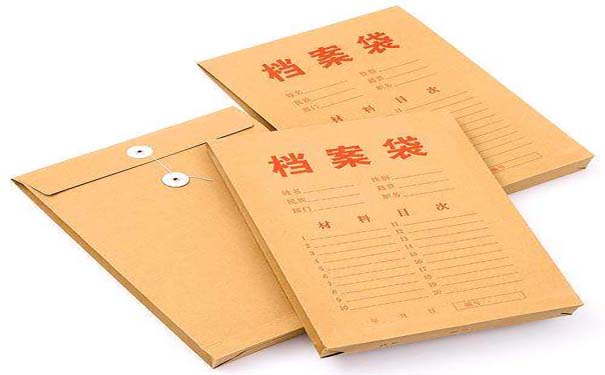 档案袋
姓名 性别
民族 籍贯
部门 职务
档案袋
姓名 性别
民族 籍贯
部门 职务
材料目次
1 11
2 12
3 13
4 14
5 15
6 16
7 17
8 18
9 19
10 20
编号
年 月 日